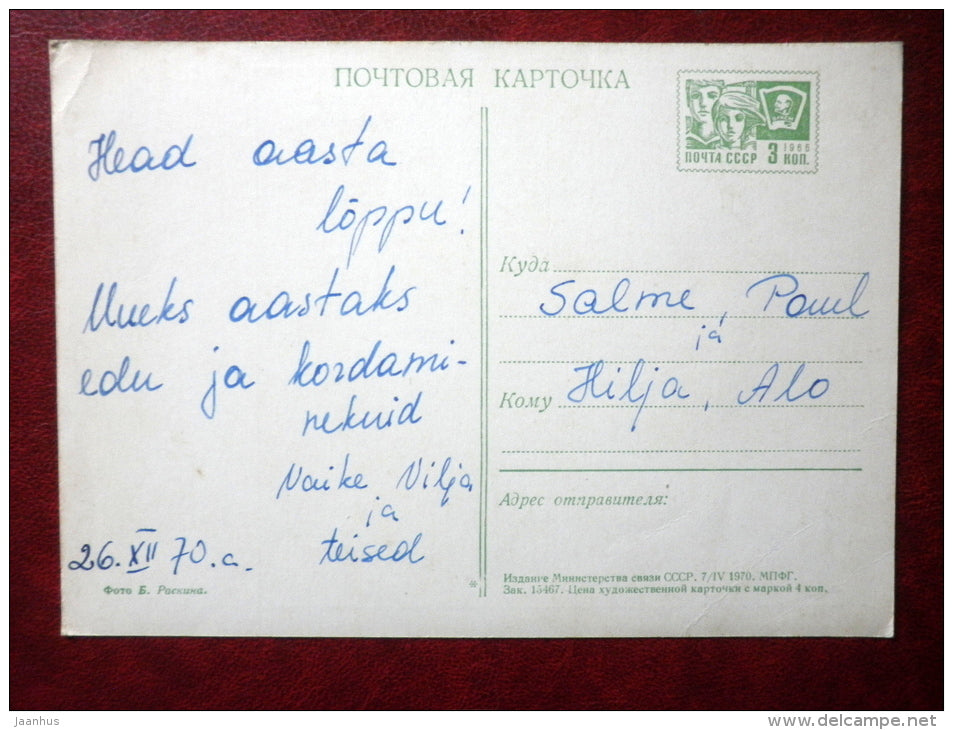 ПОЧТОВАЯ КАРТОЧКА
ПОЧТА СССР 3 КОП. 1966
Head aasta
lõppu!
Uueks aastaks
edu ja kordami-
nekuid
Vaike Vilja
ja
teised
26. XII 70. a.
Фото Б. Раскина.
*
Куда
Salme, Paul
ja
Кому Hilja, Alo
Адрес отправителя:
Издание Министерства связи СССР. 7/IV 1970. МПФГ.
Зак. 15467. Цена художественной карточки с маркой 4 коп.
Jaanhus
www.delcampe.net